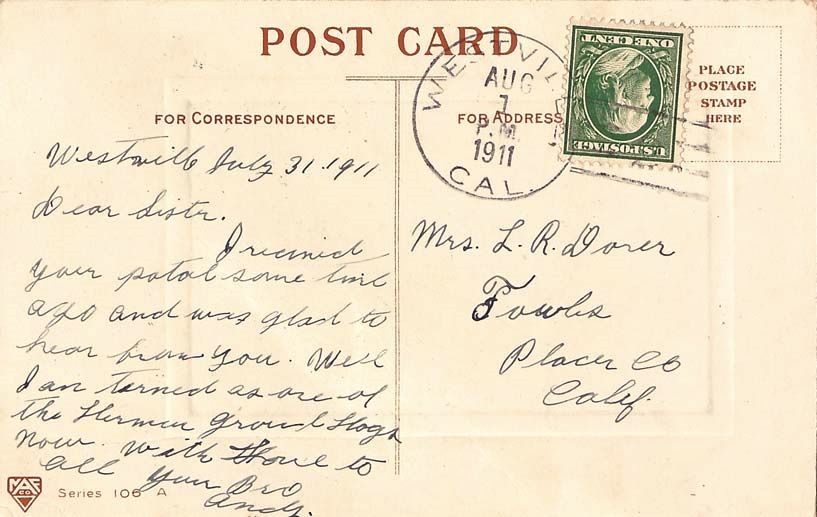 POST CARD
FOR CORRESPONDENCE
FOR ADDRESS
PLACE
POSTAGE
STAMP
HERE
U.S. POSTAGE
ONE CENT
AUG
7
P.M.
1911
CAL.
Westville July 31. 1911
Dear Sister.
I recived
your postal some time
ago and was glad to
hear from you. Well
I am turned as one of
the Ground Hogs
now. With to
all Your Bro
Andy.
Mrs. L. R. Dorer
Towles
Placer Co
Calif.
Series 106 A